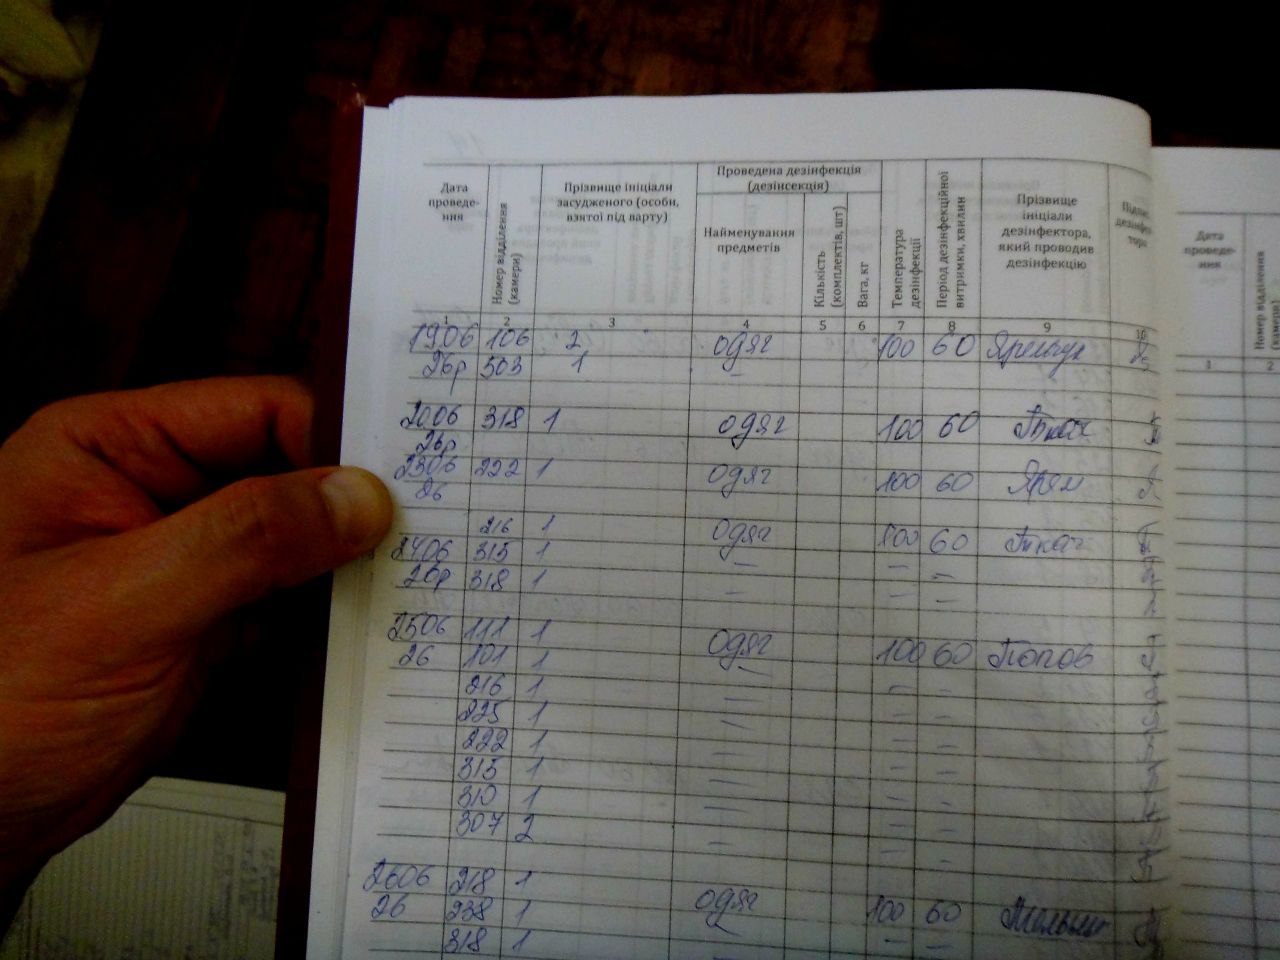 Дата проведе-ння | Номер відділення (камери) | Прізвище ініціали засудженого (особи, взятої під варту) | Проведена дезінфекція (дезінсекція) | Температура дезінфекції | Період дезінфекційної витримки, хвилин | Прізвище ініціали дезінфектора, який проводив дезінфекцію
Найменування предметів | Кількість (комплектів, шт) | Вага, кг
1 2 3 4 5 6 7 8 9 10
1906 106 2 одяг 100 60
26р 503 1 —
2006 318 1 одяг 100 60 Ткач
26р
2306 222 1 одяг 100 60 Ярем
26
216 1 одяг 100 60 Ткач
2406 315 1 — — —
26р 318 1 — — —
2506 111 1 одяг 100 60 Попов
26 101 1 —
216 1 — — —
225 1 — — —
222 1 — — —
315 1 — — —
310 1 — — —
307 2 — — —
2606 218 1
26 238 1 одяг 100 60
318 1 — —
Дата проведе-ння | Номер відділення (камери)
1 2